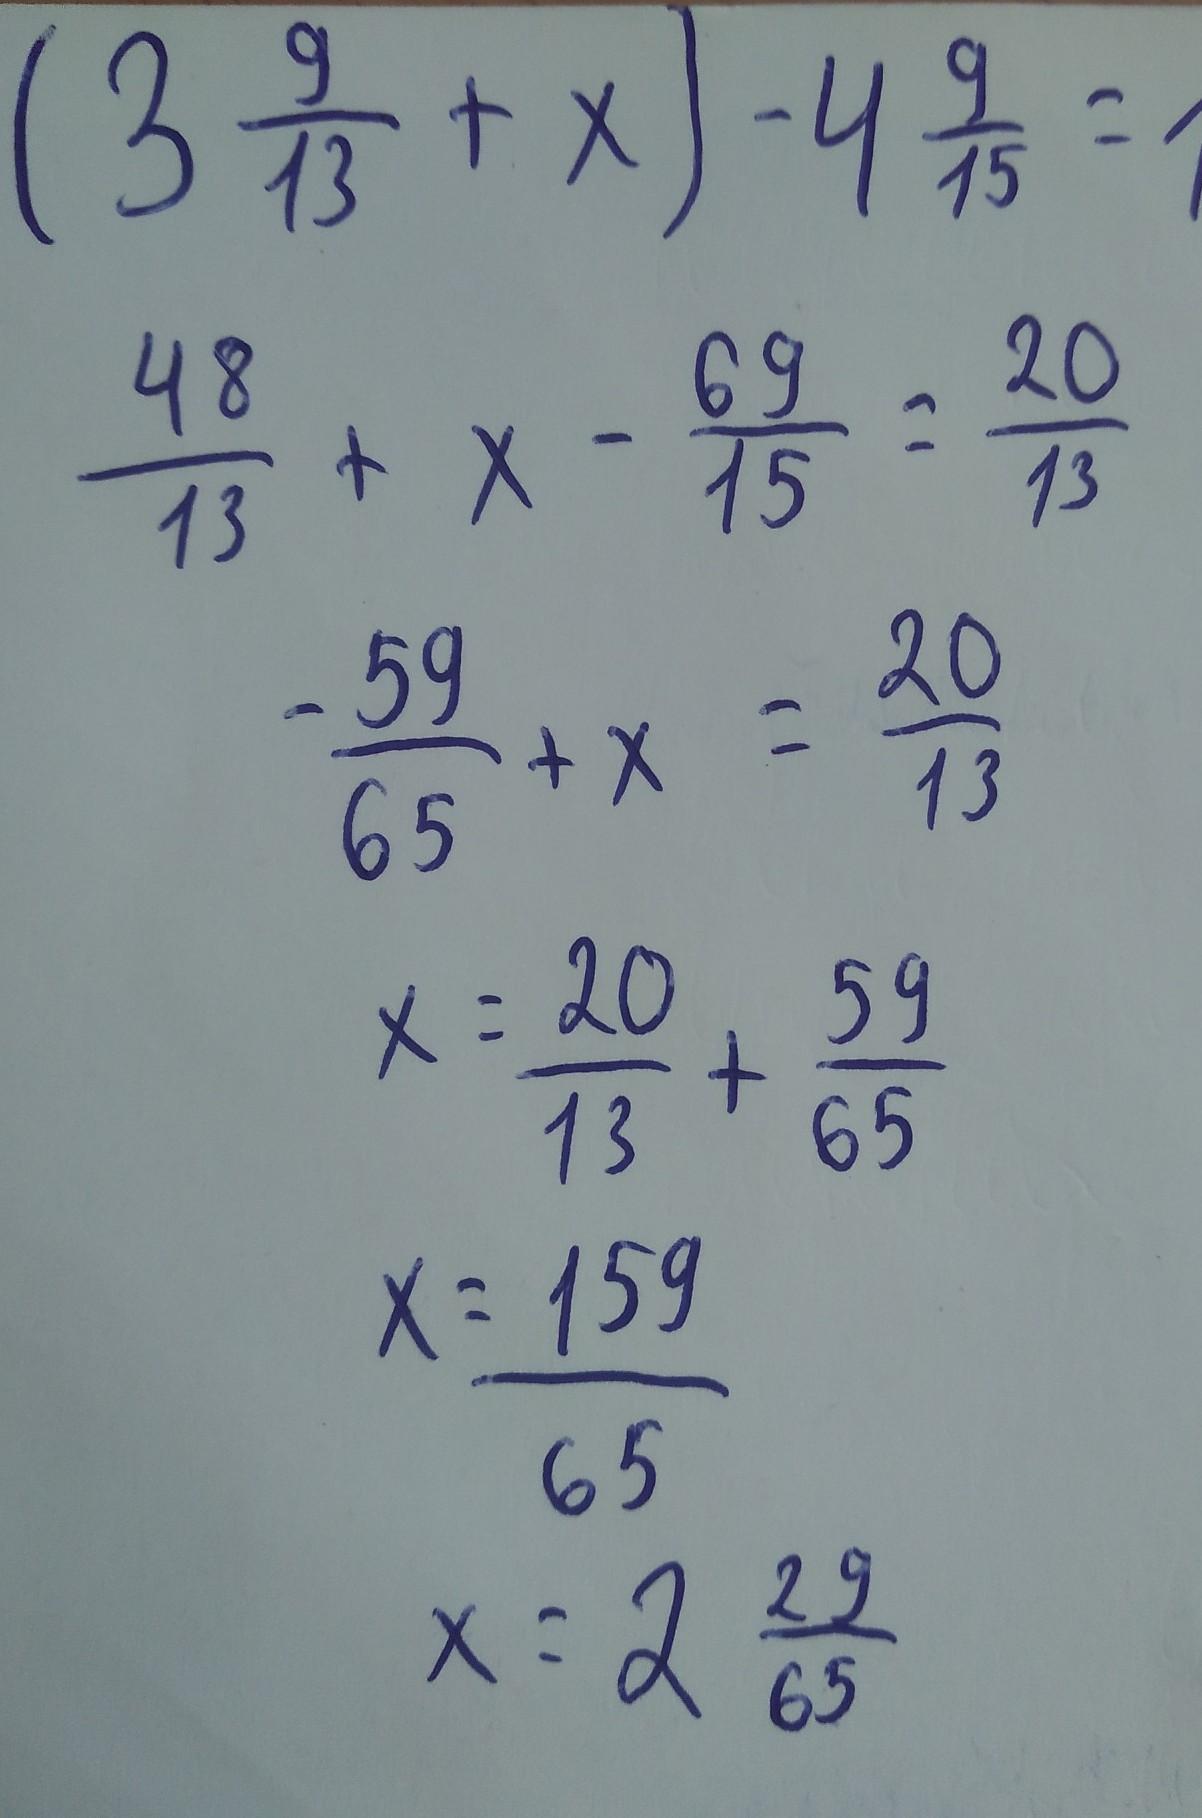 (3 9/13 + x) - 4 9/15 = 1
48/13 + x - 69/15 = 20/13
- 59/65 + x = 20/13
x = 20/13 + 59/65
x = 159/65
x = 2 29/65